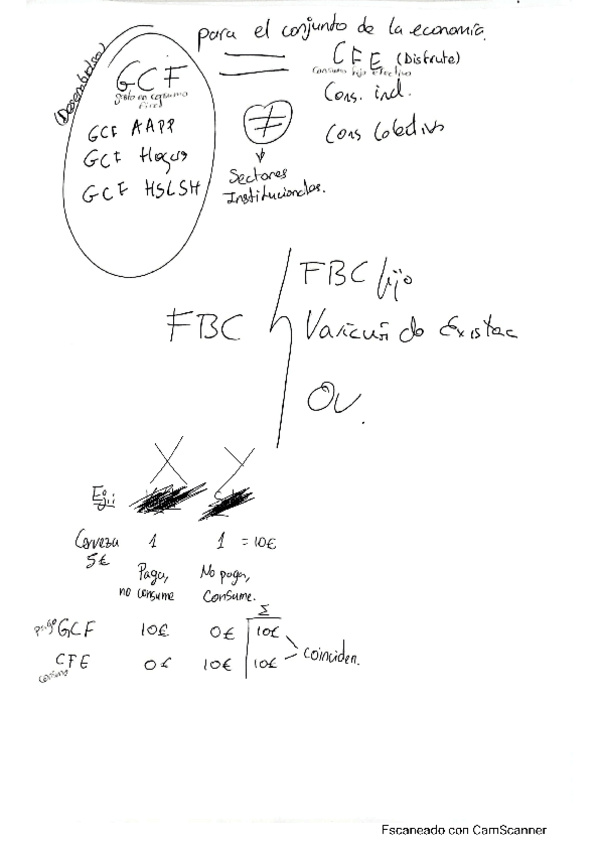 para el conjunto de la economía.
(Desembolso)
GCF = CFE (Disfrute)
gasto en consumo final
Consumo final efectivo
Cons. ind.
GCF AAPP
≠
Cons Colectivo
GCF Hogares
GCF HSLSH
Sectores
Institucionales.
FBC
FBC fijo
Variación de Existenc
OV.
X Y
Ej:
Cerveza 1 1 = 10€
5€
Paga, no consume
No paga, Consume.
Σ
pago GCF 10€ 0€ 10€
CFE 0€ 10€ 10€
consumo
coinciden.
Escaneado con CamScanner